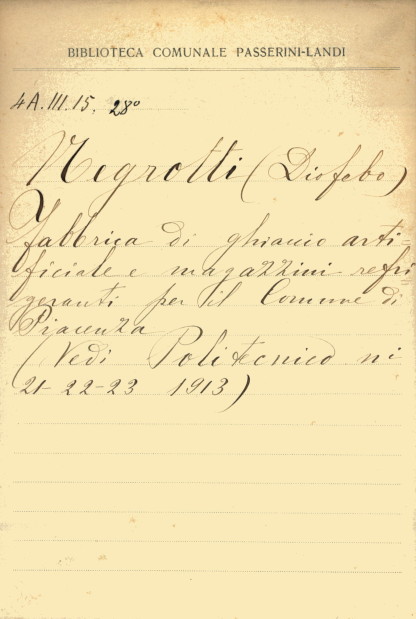 BIBLIOTECA COMUNALE PASSERINI-LANDI
4A.III.15. 28º
Negrotti (Diofebo)
Fabbrica di ghiaccio arti=
ficiale e magazzini refri=
geranti per il Comune di
Piacenza
(Vedi Politecnico ni
21-22-23 1913)